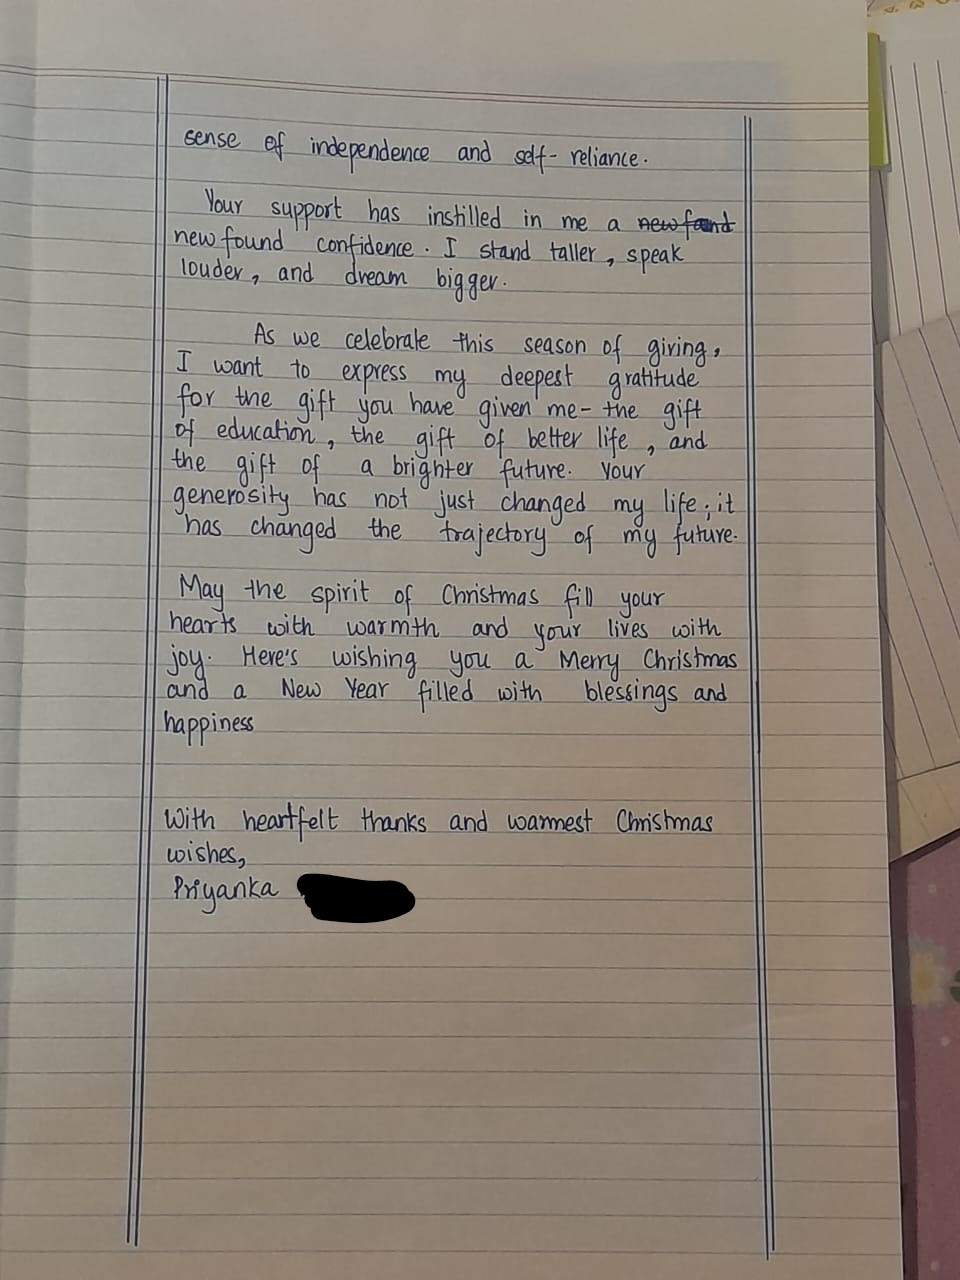 sense of independence and self- reliance.
Your support has instilled in me a newfound
new found confidence. I stand taller, speak
louder, and dream bigger.
As we celebrate this season of giving,
I want to express my deepest gratitude
for the gift you have given me- the gift
of education, the gift of better life, and
the gift of a brighter future. Your
generosity has not just changed my life; it
has changed the trajectory of my future.
May the spirit of Christmas fill your
hearts with warmth and your lives with
joy. Here's wishing you a Merry Christmas
and a New Year filled with blessings and
happiness
With heartfelt thanks and warmest Christmas
wishes,
Priyanka